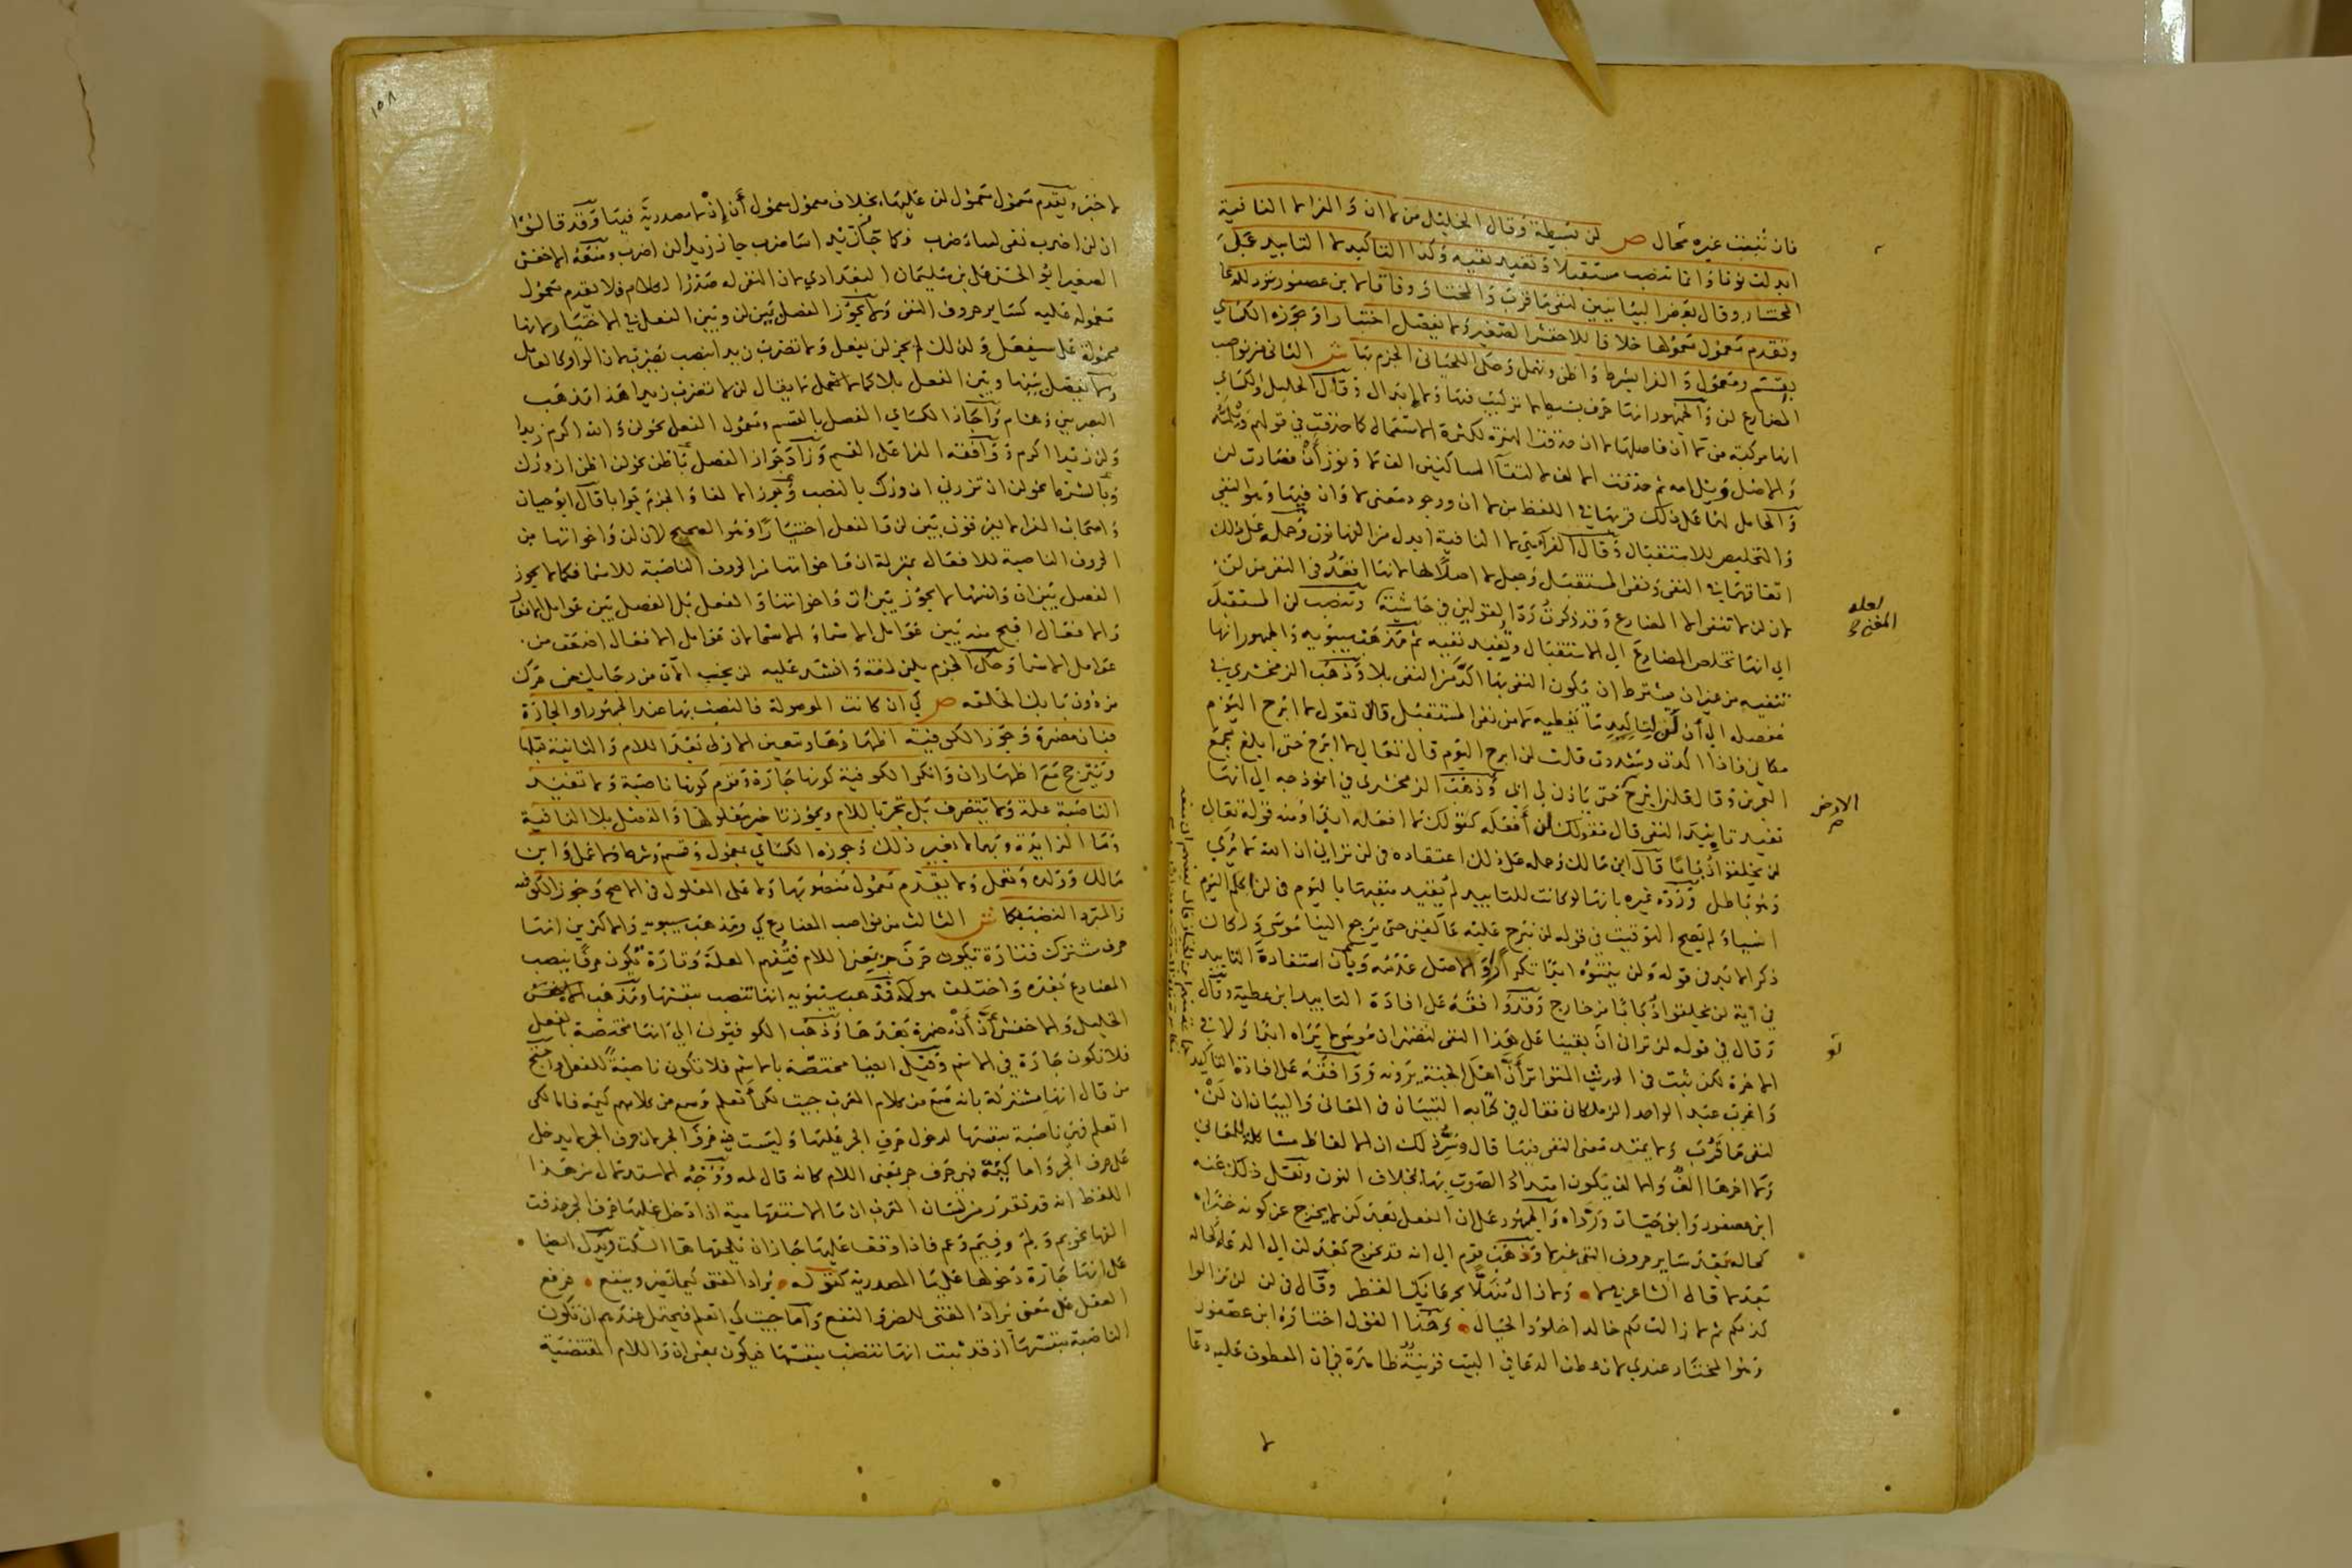 فان نتبنت غيره محال ص لن بسيطة وقال الخليل من لا ان والفرا لا النافية
ابدلت نونا وانما تنصب مستقبلا وتفيد نفيه وكذا التاكيد لا التابيد على
المختار وقال بعض البيانيين لنفي ما قرب والمختار وفاقا لابن عصفور ترد للدعا
وتقدم معمول معمولها خلافا للاخفش الصغير ولا يفصل اختيارا وجوزه الكساي
بقسم ومعمول والفرا بشرط واظن وتهمل وحكى اللحياني الجزم بها ش الثاني من نواصب
المضارع لن والجمهور انها حرف بسيط لا تركيب فيها ولا ابدال وقال الخليل والكساي
انها مركبة من لا ان فاصلها لا ان حذفت الهمزة لكثرة الاستعمال كما حذفت في قولهم ويلمه
والاصل ويل امه ثم حذفت الالف لالتقا الساكنين الف لا ونون أن فصارت لن
والحامل لهما على ذلك قربها في اللفظ من لا ان ووجود معنى لا وان فيها وهو النفي
والتخليص للاستقبال وقال الفرا هي لا النافية ابدل من الفها نون وحمله على ذلك
اتفاقهما في النفي ونفي المستقبل وجعل لا اصلا لها لانها اقعد في النفي من لن
لان لن لا تنفي الا المضارع وقد ذكرت رد القولين في حاشية وتنصب لن المستقبل
اي انها تخلص المضارع الى الاستقبال وتفيد نفيه ثم مذهب سيبويه والجمهور انها
تنفيه من غير ان يشترط ان يكون النفي بها اكد من النفي بلا وذهب الزمخشري في
مفصله الى أن لن لتاكيد ما تعطيه لا من نفي المستقبل قال تقول لا ابرح اليوم
مكاني فاذا اكدت وشددت قلت لن ابرح اليوم قال تعالى لا ابرح حتى ابلغ مجمع
البحرين وقال فلن ابرح حتى ياذن لي ابي وذهب الزمخشري في انموذجه الى انها
تفيد تابيد النفي قال فقولك لن أفعله كقولك لا افعله ابدا ومنه قوله تعالى
لن يخلقوا ذبابا قال ابن مالك وحمله على ذلك اعتقاده في لن تراني ان الله لا يرى
وهو باطل ورده غيره بانها لو كانت للتابيد لم يقيد منفيها باليوم في لن اكلم اليوم
انسيا ولم يصح التوقيت في قوله لن نبرح عليه عاكفين حتى يرجع الينا موسى ولكان
ذكر الابد في قوله ولن يتمنوه ابدا تكرارا والاصل عدمه وبان استفادة التابيد
في اية لن يخلقوا ذبابا من خارج وقد وافقه على افادة التابيد ابن عطية وقال
وقال في قوله لن تراني ان بقينا على هذا النفي لتضمن ان موسى لا يراه ابدا ولا في
الاخرة لكن ثبت في الحديث المتواتر أن اهل الجنة يرونه ووافقه على افادة التاكيد
واغرب عبد الواحد الزملكاني فقال في كتابه التبيان في المعاني والبيان ان لن
لنفي ما قرب ولا يمتد معنى النفي فيها قال وسر ذلك ان الالفاظ مشاكلة للمعاني
ولا اخرها الف والالف يكون امتداد الصوت بها بخلاف النون ونقل ذلك عنه
ابن عصفور وابو حيان ورداه والجمهور على ان الفعل بعد لن لا يخرج عن كونه خبرا
كحاله بعد ساير حروف النفي غير لا وذهب قوم الى انه قد يخرج بعد لن الى الدعا كحاله
بعد لا قال الشاعر في لا ولا زال منهلا بجرعائك القطر وقال في لن لن تزالوا
كذلكم ثم لا زلت لكم خالدا خلود الجبال وهذا القول اختاره ابن عصفور
وهو المختار عندي لان عطف الدعا في البيت قرينة ظاهرة في ان المعطوف عليه دعا
لعله
المغني
الارض
لو
١٥٨
لا خبر ويقدم معمول معمول لن عليها بخلاف معمول معمول أن إن لا مصدرية فيها وقد قالوا
ان لن اضرب نفي لساضرب فكما جاز زيدا ساضرب جاز زيدا لن اضرب ومنعه الاخفش
الصغير ابو الحسن علي بن سليمان البغدادي لان النفي له صدر الكلام فلا يقدم معمول
معموله عليه كساير حروف النفي ولا يجوز الفصل بين لن وبين الفعل في الاختيار لانها
محمولة على سيفعل ولذلك لم يجز لن يفعل ولا تضرب زيدا بنصب تضرب لان الواو كالعامل
ولا يفصل بينها وبين الفعل بلا كما لا فلا يقال لن لا تضرب زيدا هذا مذهب
البصريين وهشام واجاز الكساي الفصل بالقسم ومعمول الفعل نحو لن والله اكرم زيدا
ولن زيدا اكرم ووافقه الفرا على القسم وزاد جواز الفصل باظن نحو لن اظن ازورك
وبالشرط نحو لن ان تزرني ازورك بالنصب وجوز الالغا والجزم جوابا قال ابو حيان
واصحاب الفرا لا يفرقون بين لن والفعل اختيارا وهو الصحيح لان لن واخواتها من
الحروف الناصبة للافعال بمنزلة ان واخواتها من الحروف الناصبة للاسما فكما لا يجوز
الفصل بين ان واسمها لا يجوز بين لن واخواتها والفعل بل الفصل بين عوامل الافعال
والافعال اقبح منه بين عوامل الاسما والاسما لان عوامل الافعال اضعف من
عوامل الاسما وحكى الجزم بلن لغة وانشد عليه لن يخب الان من رجايك من حرك
من دون بابك الحلقه ص كي ان كانت الموصولة فالنصب بها عند الجمهور او الجارة
فبان مضمرة وجوز الكوفية اظهارها وتعين الاولى بعد اللام والثانية قبلها
وتترجح مع اظهار ان وانكر الكوفية كونها جارة وقوم كونها ناصبة ولا تفيد
الناصبة علة ولا تتصرف بل تجر باللام ويجوز تاخير معلولها والفصل بلا النافية
وما الزايدة وبهما لا بغير ذلك وجوزه الكساي بمعمول وقسم وشرط ولا عمل وابن
مالك وولده وتعمل ولا يقدم معمول منصوبها ولا على المعلول في الاصح وجوز الكوفية
والمبرد النصب بكما ش الثالث من نواصب المضارع كي ومذهب سيبويه والاكثرين انها
حرف مشترك فتارة تكون حرف جر بمعنى اللام فتفهم العلة وتارة تكون حرفا ينصب
المضارع بعده واختلف هولا فمذهب سيبويه انها تنصب بنفسها ومذهب
الخليل والاخفش أن أن مضمرة بعدها وذهب الكوفيون الى انها مختصة بالفعل
فلا تكون جارة في الاسم وقيل ايضا مختصة بالاسم فلا تكون ناصبة للفعل واحتج
من قال انها مشتركة بانه سمع من كلام العرب جيت لكي أتعلم وسمع من كلامهم كيمه فاما لكي
اتعلم فهي ناصبة بنفسها لدخول حرف الجر عليها وليست فيه حرف الجر لان حرف الجر لا يدخل
على حرف الجر واما كيمه فهي حرف جر بمعنى اللام كانه قال لمه ووجه الاستدلال من هذا
اللفظ انه قد تقرر من لسان العرب ان ما الاستفهامية اذا دخل عليها حرف الجر حذفت
الفها نحو بم ولم وفيم وعم فاذا وقف عليها جاز ان تلحقها ها السكت ويدل ايضا
على انها جارة دخولها على ما المصدرية كقوله يراد الفتى كيما يضر وينفع فرفع
الفعل على معنى يراد الفتى للضر والنفع واما جيت كي اتعلم فيحتمل عندهم ان تكون
الناصبة بنفسها اذ قد ثبت انها تنصب بنفسها فيكون بمعنى ان واللام المقتضية